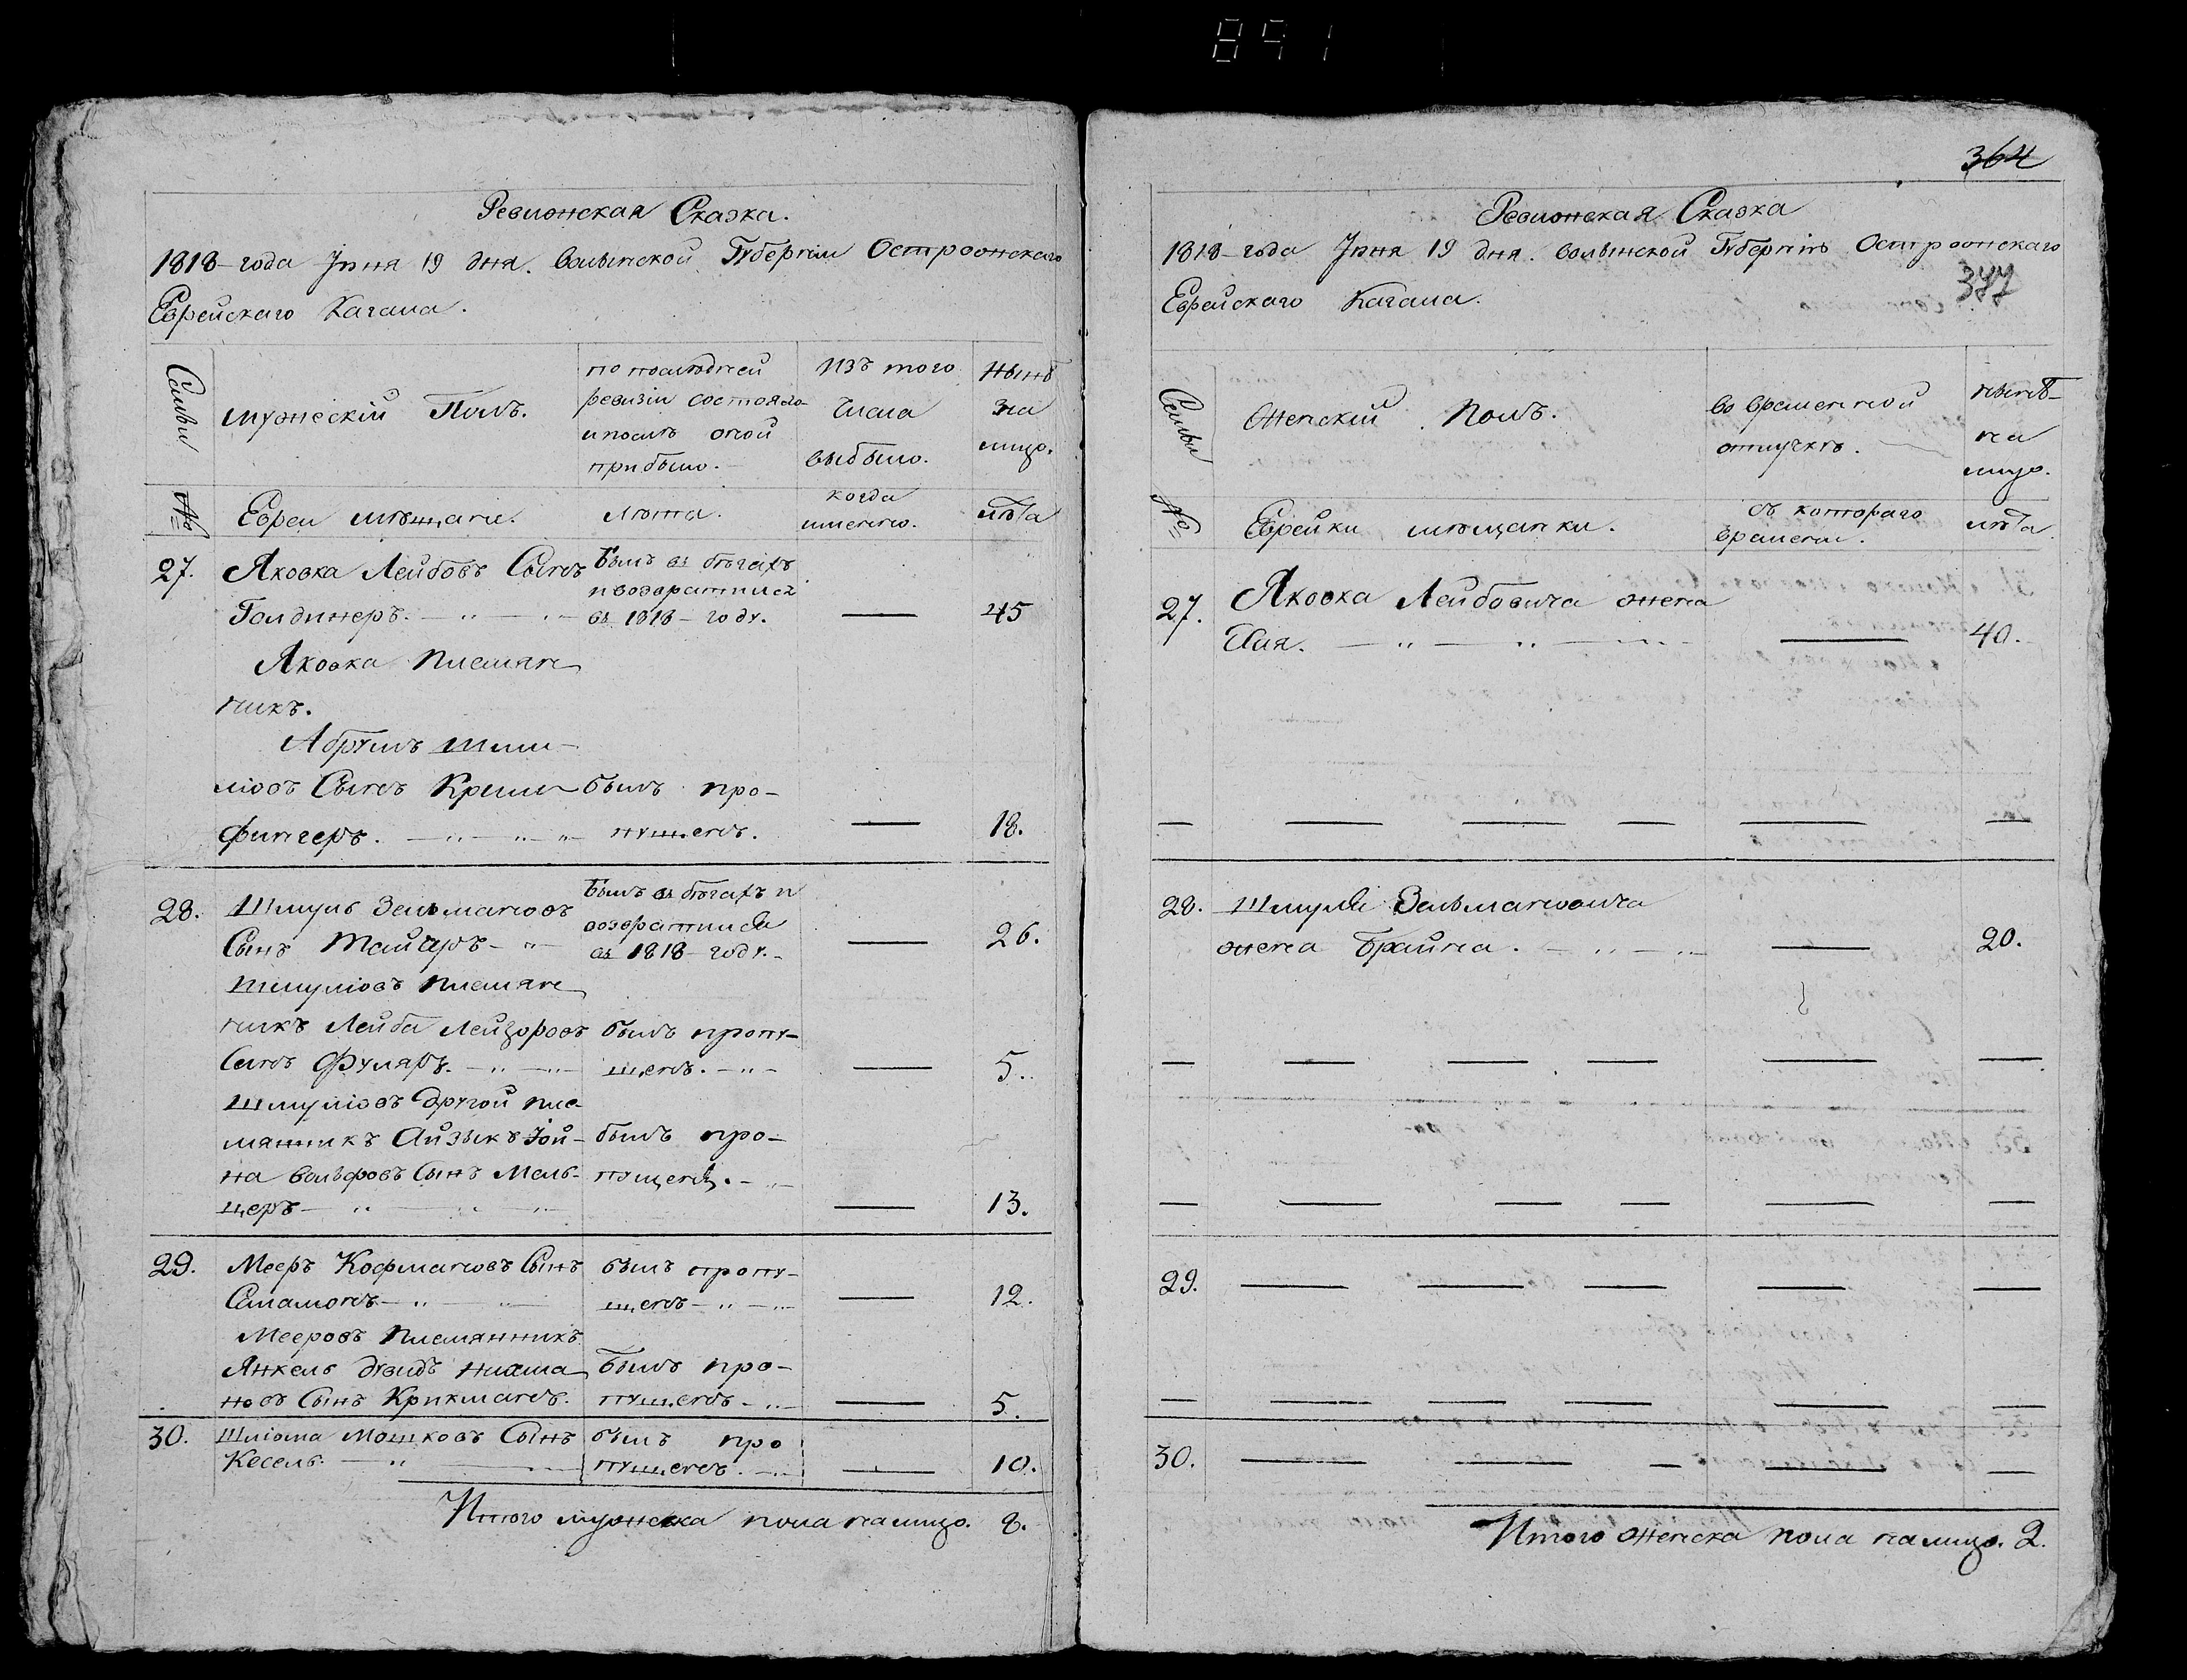 891
Ревизская Сказка.
1818 года Іюня 19 дня. Волынской Губерніи Острожскаго
Еврейскаго Кагала.
Семьи
мужескій Полъ.
по послѣдней
ревизіи состояло
и послѣ оной
прибыло.
Изъ того
числа
выбыло.
Нынѣ
на
лицо.
№
Евреи мѣщане.
лѣта.
когда
именно.
лѣта
27. Яковка Лейбовъ Сынъ Былъ въ бѣгахъ
и возвратился
Голдинеръ. въ 1818 году. — 45
Яковка племян
никъ.
Абрумъ Шмы-
ліовъ Сынъ Крым былъ про-
фингеръ. пущенъ. — 18.
28. Шмуль Зельмановъ Былъ въ бѣгахъ и
возвратился
Сынъ Тайчеръ въ 1818 году. — 26.
Шмуліовъ племян
никъ Лейба Лейзоровъ былъ пропу-
Сынъ Фуляръ. щенъ. — 5.
Шмуліовъ другой пле-
мянникъ Айзыкъ Іой- былъ про-
на Вольфовъ Сынъ Мель- пущенъ.
церъ — 13.
29. Мееръ Кофмановъ Сынъ былъ пропу-
Саламонъ щенъ — 12.
Мееровъ племянникъ
Янкель дувидъ былъ про-
новъ Сынъ Крикманъ. пущенъ — 5.
30. Шліома Мошковъ Сынъ былъ про
Кесель. пущенъ. — 10.
Итого мужеска пола налицо. 8.
364
Ревизская Сказка
1818 года Іюня 19 дня. Волынской Губерніи Острожскаго
377
Еврейскаго Кагала.
Семьи
Женскій Полъ.
во временной
отлучкѣ.
нынѣ
на
лицо.
№
Еврейки мѣщанки.
съ котораго
времени.
лѣта.
27. Яковка Лейбовича жена
Хая. — 40.
— — — — — —
28. Шмуля Зельмановича
жена Брайна. — 20.
— — — — — —
— — — — — —
29. — — — — —
— — — — — —
30. — — — — —
Итого женска пола налицо. 2.